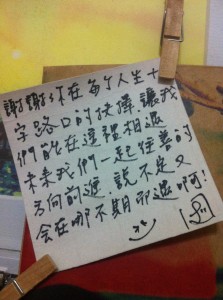 謝謝你在每个人生十
字路口的抉擇,讓我
們能在這裡相遇
未來我們一起往善的
方向前進,說不定又
會在哪不期而遇啊!